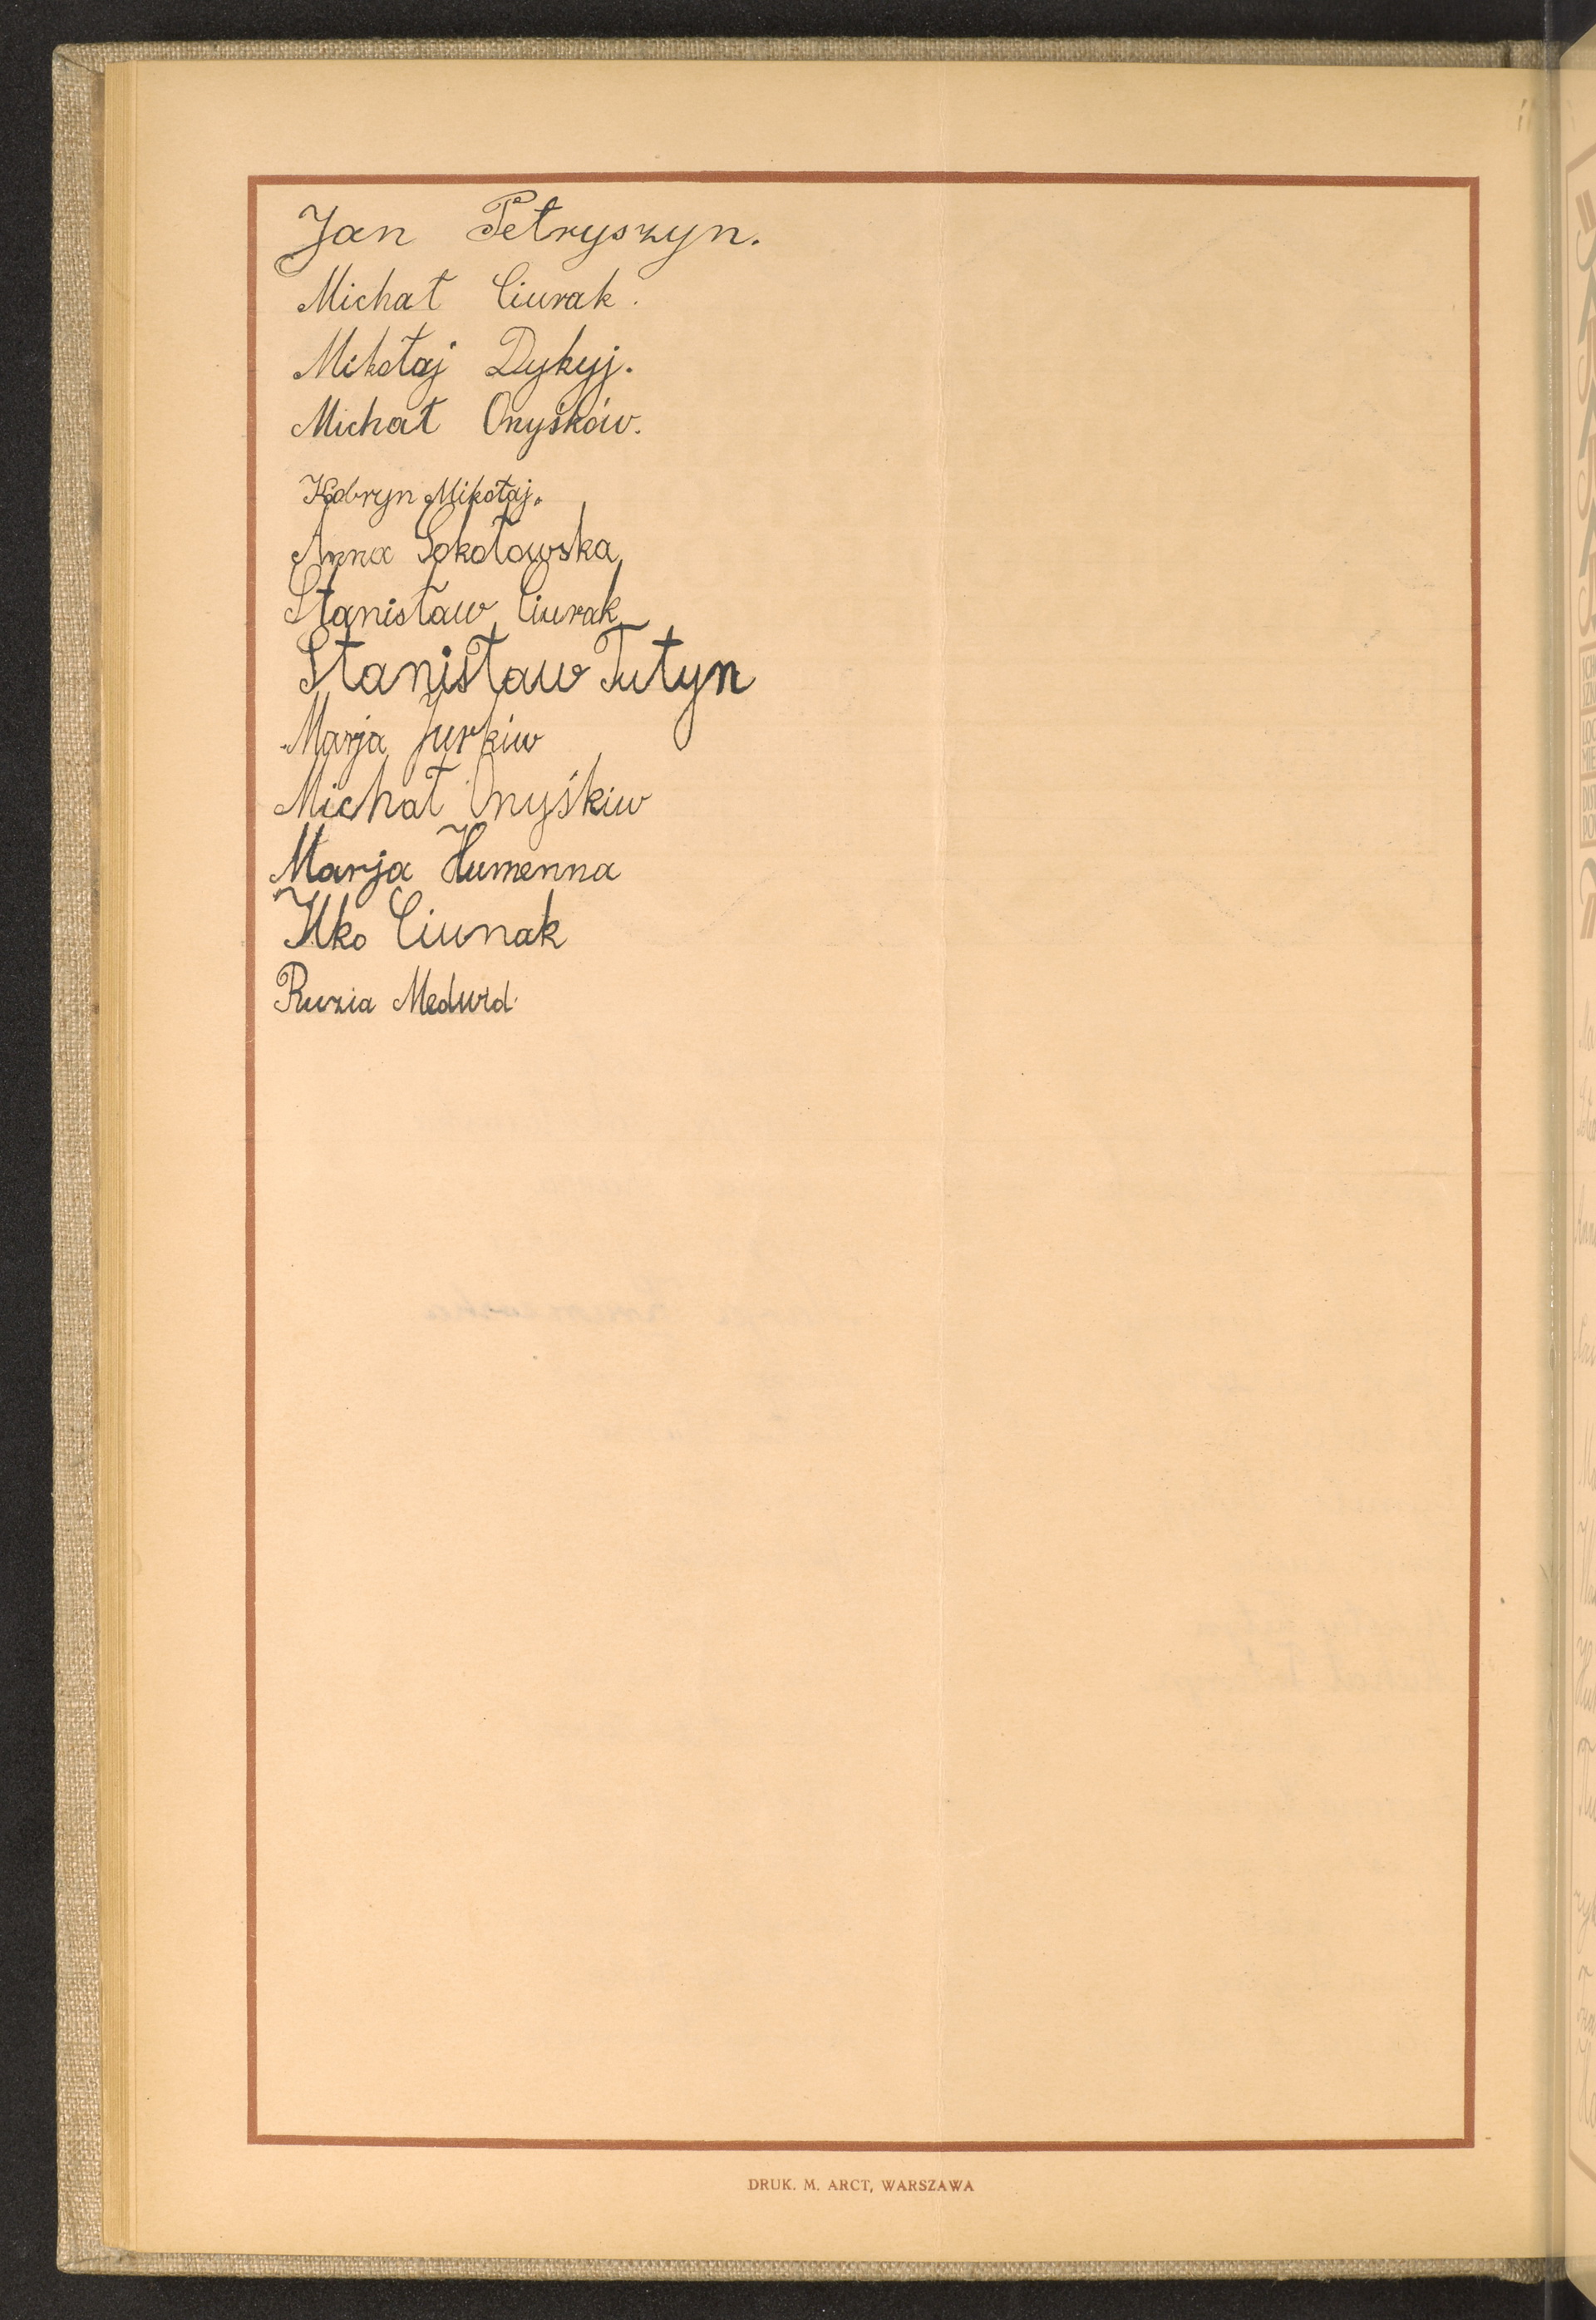 Jan Petryszyn.
Michał Ciurak.
Mikołaj Dykyj.
Michał Onyśków.
Kobryn Mikołaj.
Anna Sokołowska
Stanisław Ciurak
Stanisław Tutyn
Marja Jurkiw
Michał Onyśkiw
Marja Humenna
Ilko Ciunak
Ruzia Medwid
DRUK. M. ARCT, WARSZAWA